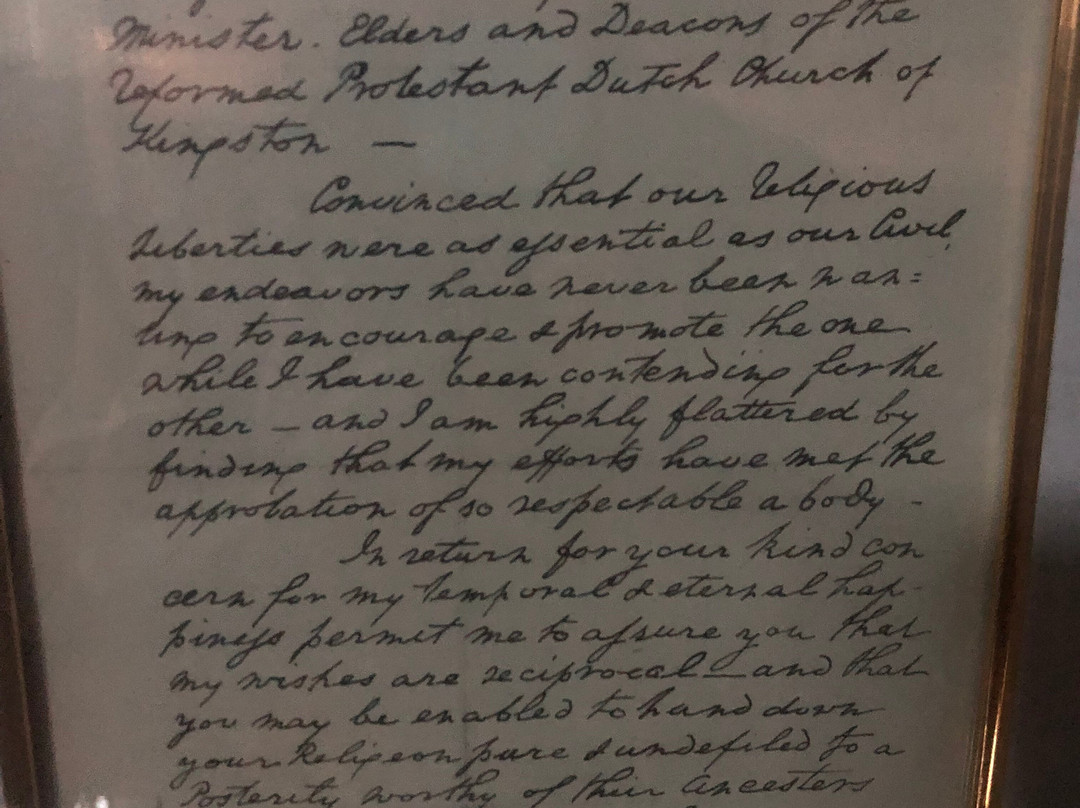 Minister. Elders and Deacons of the
Reformed Protestant Dutch Church of
Kingston —
Convinced that our Religious
Liberties were as essential as our Civil,
my endeavors have never been wan=
ting to encourage & promote the one
while I have been contending for the
other — and I am highly flattered by
finding that my efforts have met the
approbation of so respectable a body -
In return for your kind con
cern for my temporal & eternal hap-
piness permit me to assure you that
my wishes are reciprocal — and that
you may be enabled to hand down
your Religeon pure & undefiled to a
Posterity worthy of their Ancesters